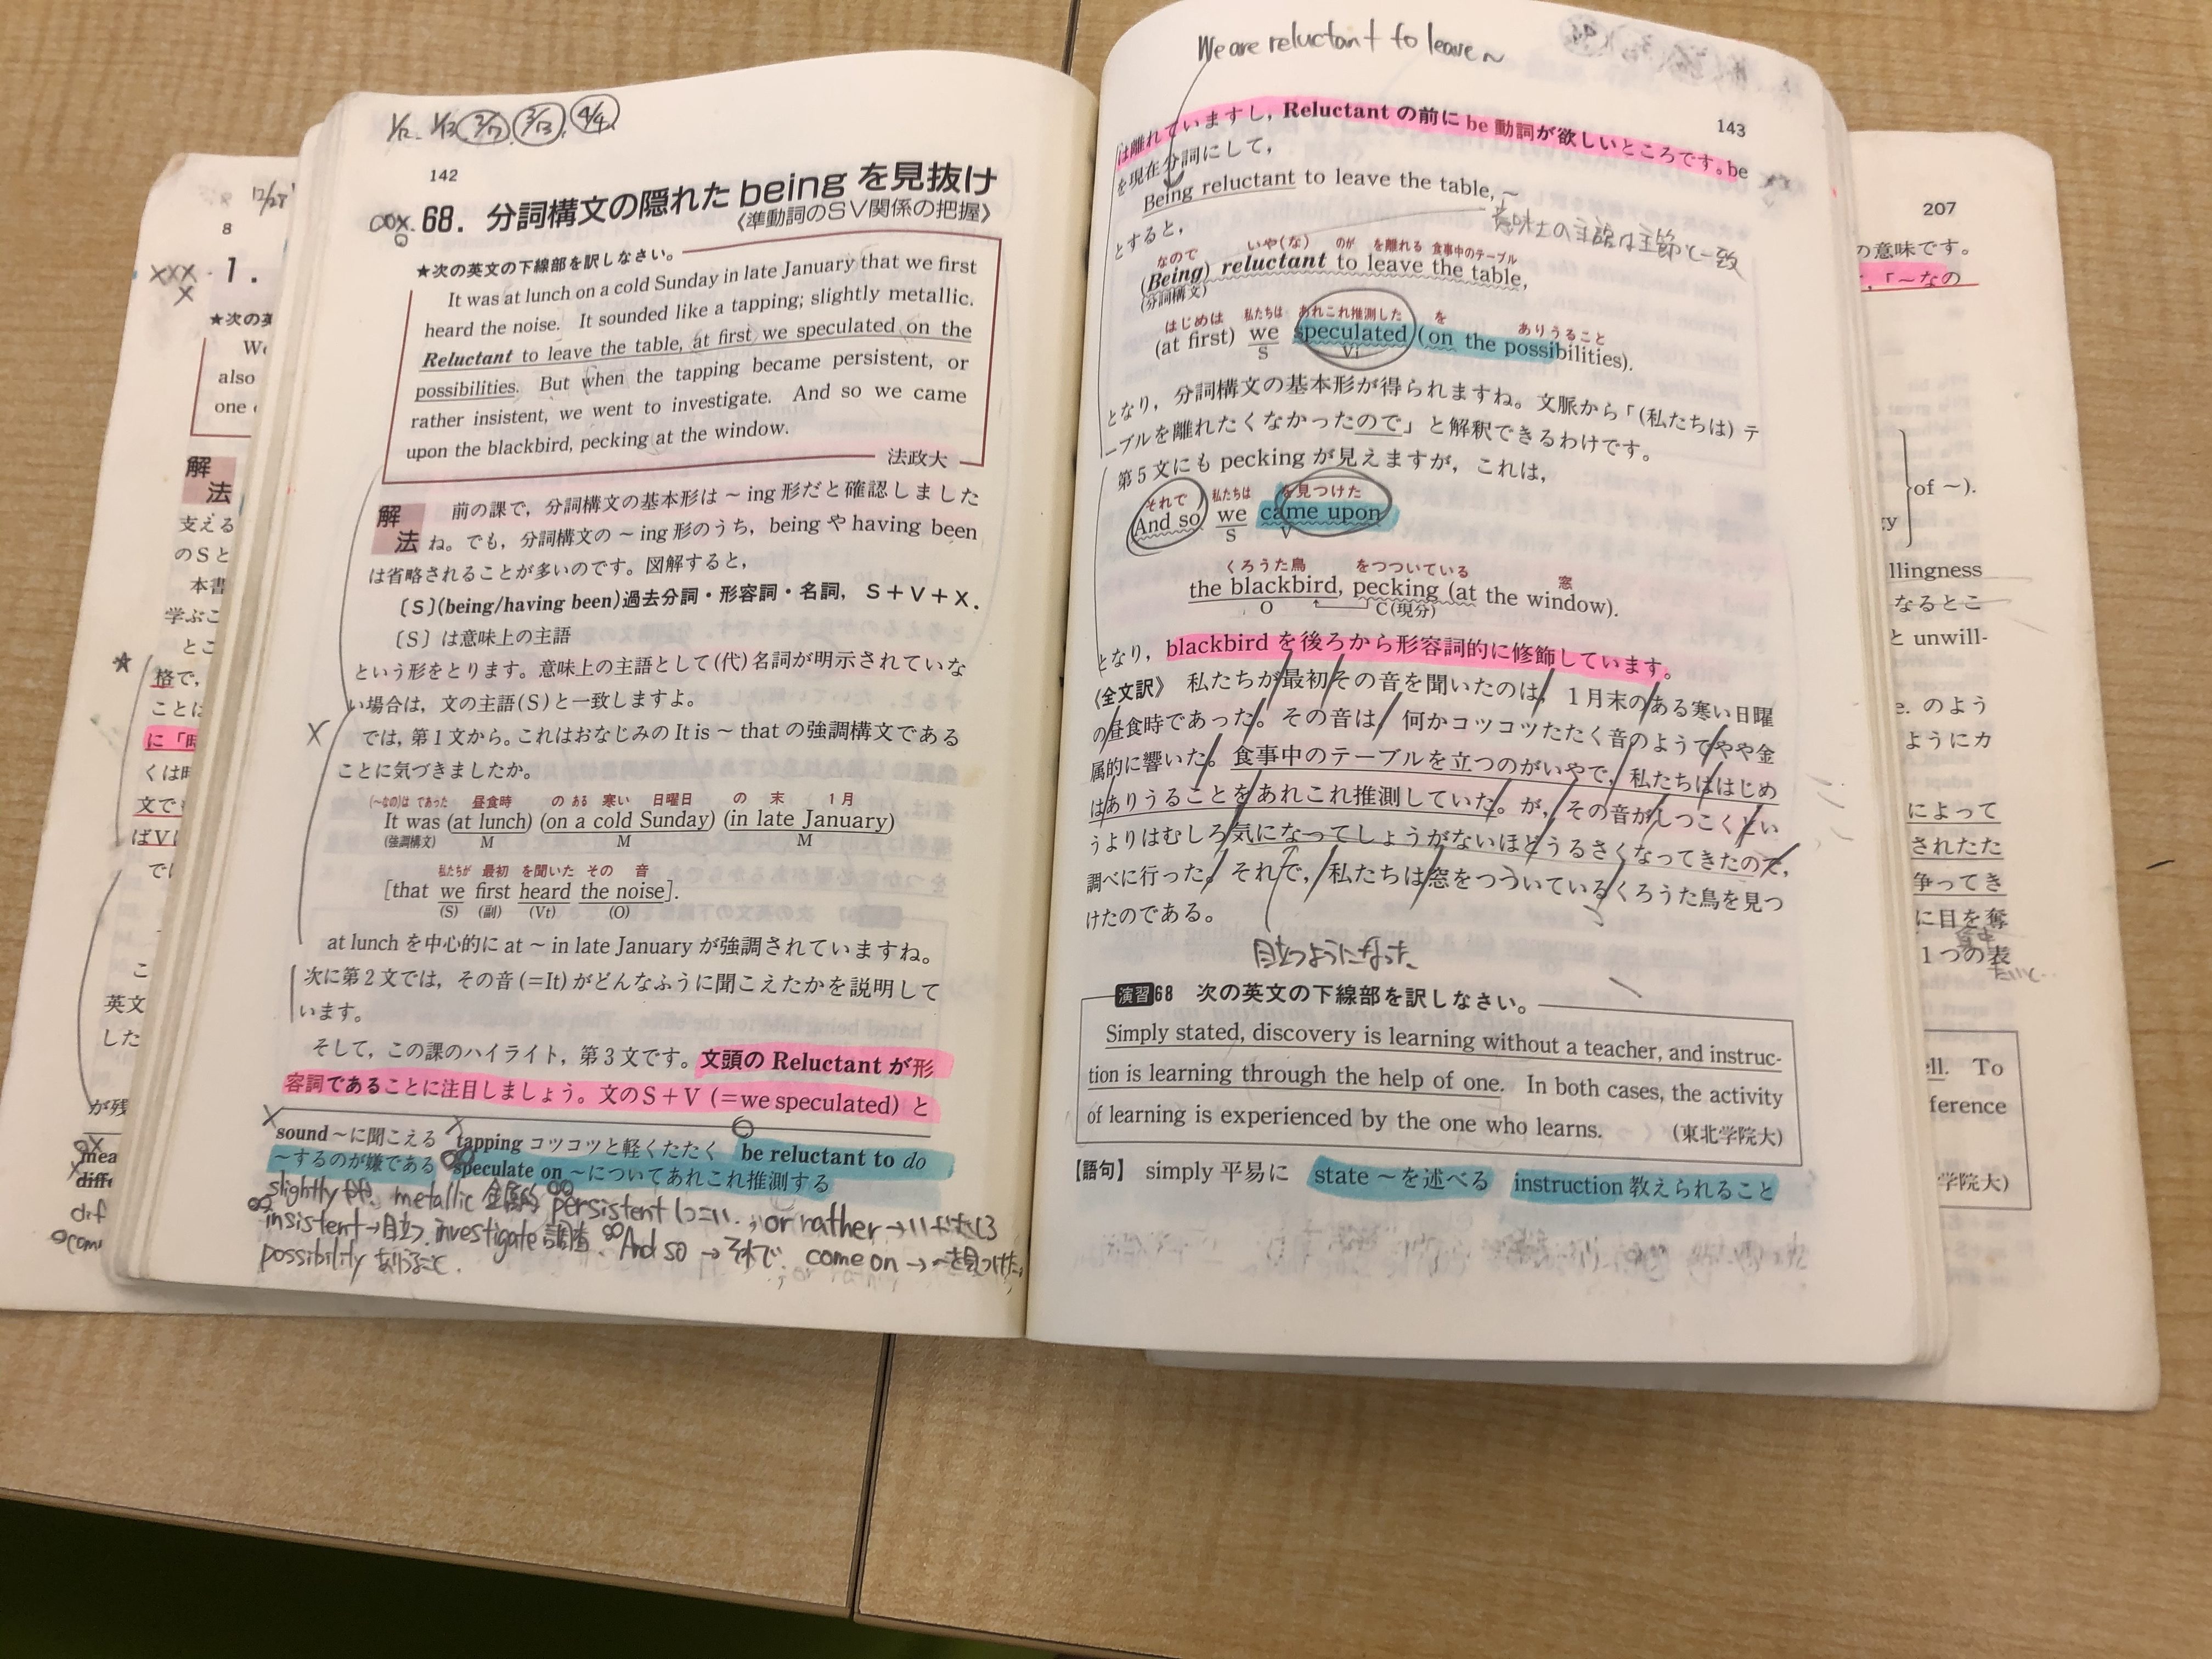 1/12. 1/13 2/17. 3/13. 4/4.
142
68. 分詞構文の隠れた being を見抜け
《準動詞のSV関係の把握》
★次の英文の下線部を訳しなさい。
It was at lunch on a cold Sunday in late January that we first
heard the noise. It sounded like a tapping; slightly metallic.
Reluctant to leave the table, at first we speculated on the
possibilities. But when the tapping became persistent, or
rather insistent, we went to investigate. And so we came
upon the blackbird, pecking at the window.
法政大
解法
前の課で，分詞構文の基本形は〜ing形だと確認しました
ね。でも，分詞構文の〜ing形のうち，being や having been
は省略されることが多いのです。図解すると，
〔S〕(being/having been)過去分詞・形容詞・名詞，S＋V＋X．
〔S〕は意味上の主語
という形をとります。意味上の主語として(代)名詞が明示されていな
い場合は，文の主語(S)と一致しますよ。
では，第1文から。これはおなじみの It is 〜 that の強調構文である
ことに気づきましたか。
(〜なの)は であった 昼食時 の ある 寒い 日曜日 の 末 1月
It was (at lunch) (on a cold Sunday) (in late January)
(強調構文) M M M
私たちが 最初 を聞いた その 音
[that we first heard the noise].
(S) (副) (Vt) (O)
at lunch を中心的に at 〜 in late January が強調されていますね。
次に第2文では，その音(＝It)がどんなふうに聞こえたかを説明して
います。
そして，この課のハイライト，第3文です。文頭の Reluctant が形
容詞であることに注目しましょう。文のS＋V (＝we speculated) と
sound 〜に聞こえる tapping コツコツと軽くたたく be reluctant to do
〜するのが嫌である speculate on 〜についてあれこれ推測する
slightly やや. metallic 金属的 persistent しつこい. or rather→いやむしろ
insistent→目立つ. investigate 調査. And so →それで. come on →〜を見つけた.
possibility ありうること.
We are reluctant to leave〜
143
は離れていますし，Reluctant の前に be 動詞が欲しいところです。be
を現在分詞にして，
Being reluctant to leave the table, 〜
意味上の主語は主節と一致
とすると，
なので いや(な) のが を離れる 食事中のテーブル
(Being) reluctant to leave the table,
(分詞構文)
はじめは 私たちは あれこれ推測した を ありうること
(at first) we speculated (on the possibilities).
S Vi
となり，分詞構文の基本形が得られますね。文脈から「(私たちは) テ
ーブルを離れたくなかったので」と解釈できるわけです。
第5文にも pecking が見えますが，これは，
それで 私たちは を見つけた
And so we came upon
S V
くろうた鳥 をつついている 窓
the blackbird, pecking (at the window).
O C(現分)
となり，blackbird を後ろから形容詞的に修飾しています。
《全文訳》 私たちが最初その音を聞いたのは，1月末のある寒い日曜
の昼食時であった。その音は，何かコツコツたたく音のようでやや金
属的に響いた。食事中のテーブルを立つのがいやで，私たちははじめ
はありうることをあれこれ推測していた。が，その音がしつこくとい
うよりはむしろ気になってしょうがないほどうるさくなってきたので，
調べに行った。それで，私たちは窓をつついているくろうた鳥を見つ
けたのである。
目立つようになった
演習68 次の英文の下線部を訳しなさい。
Simply stated, discovery is learning without a teacher, and instruc-
tion is learning through the help of one. In both cases, the activity
of learning is experienced by the one who learns. (東北学院大)
【語句】 simply 平易に state 〜を述べる instruction 教えられること
12/25
8
1.
★次の英
also
one
解法
支える
のSと
本書
学ぶこ
とこ
格で，
ことは
くは時
文で
ばV
で
こ
英文
した
が残
mea
diff
dif
com
207
の意味です。
，「〜なの
of 〜).
llingness
なるとこ
と unwill-
e. のよう
ようにカ
によって
されたた
争ってき
に目を奪
1つの表
ell. To
ference
学院大)